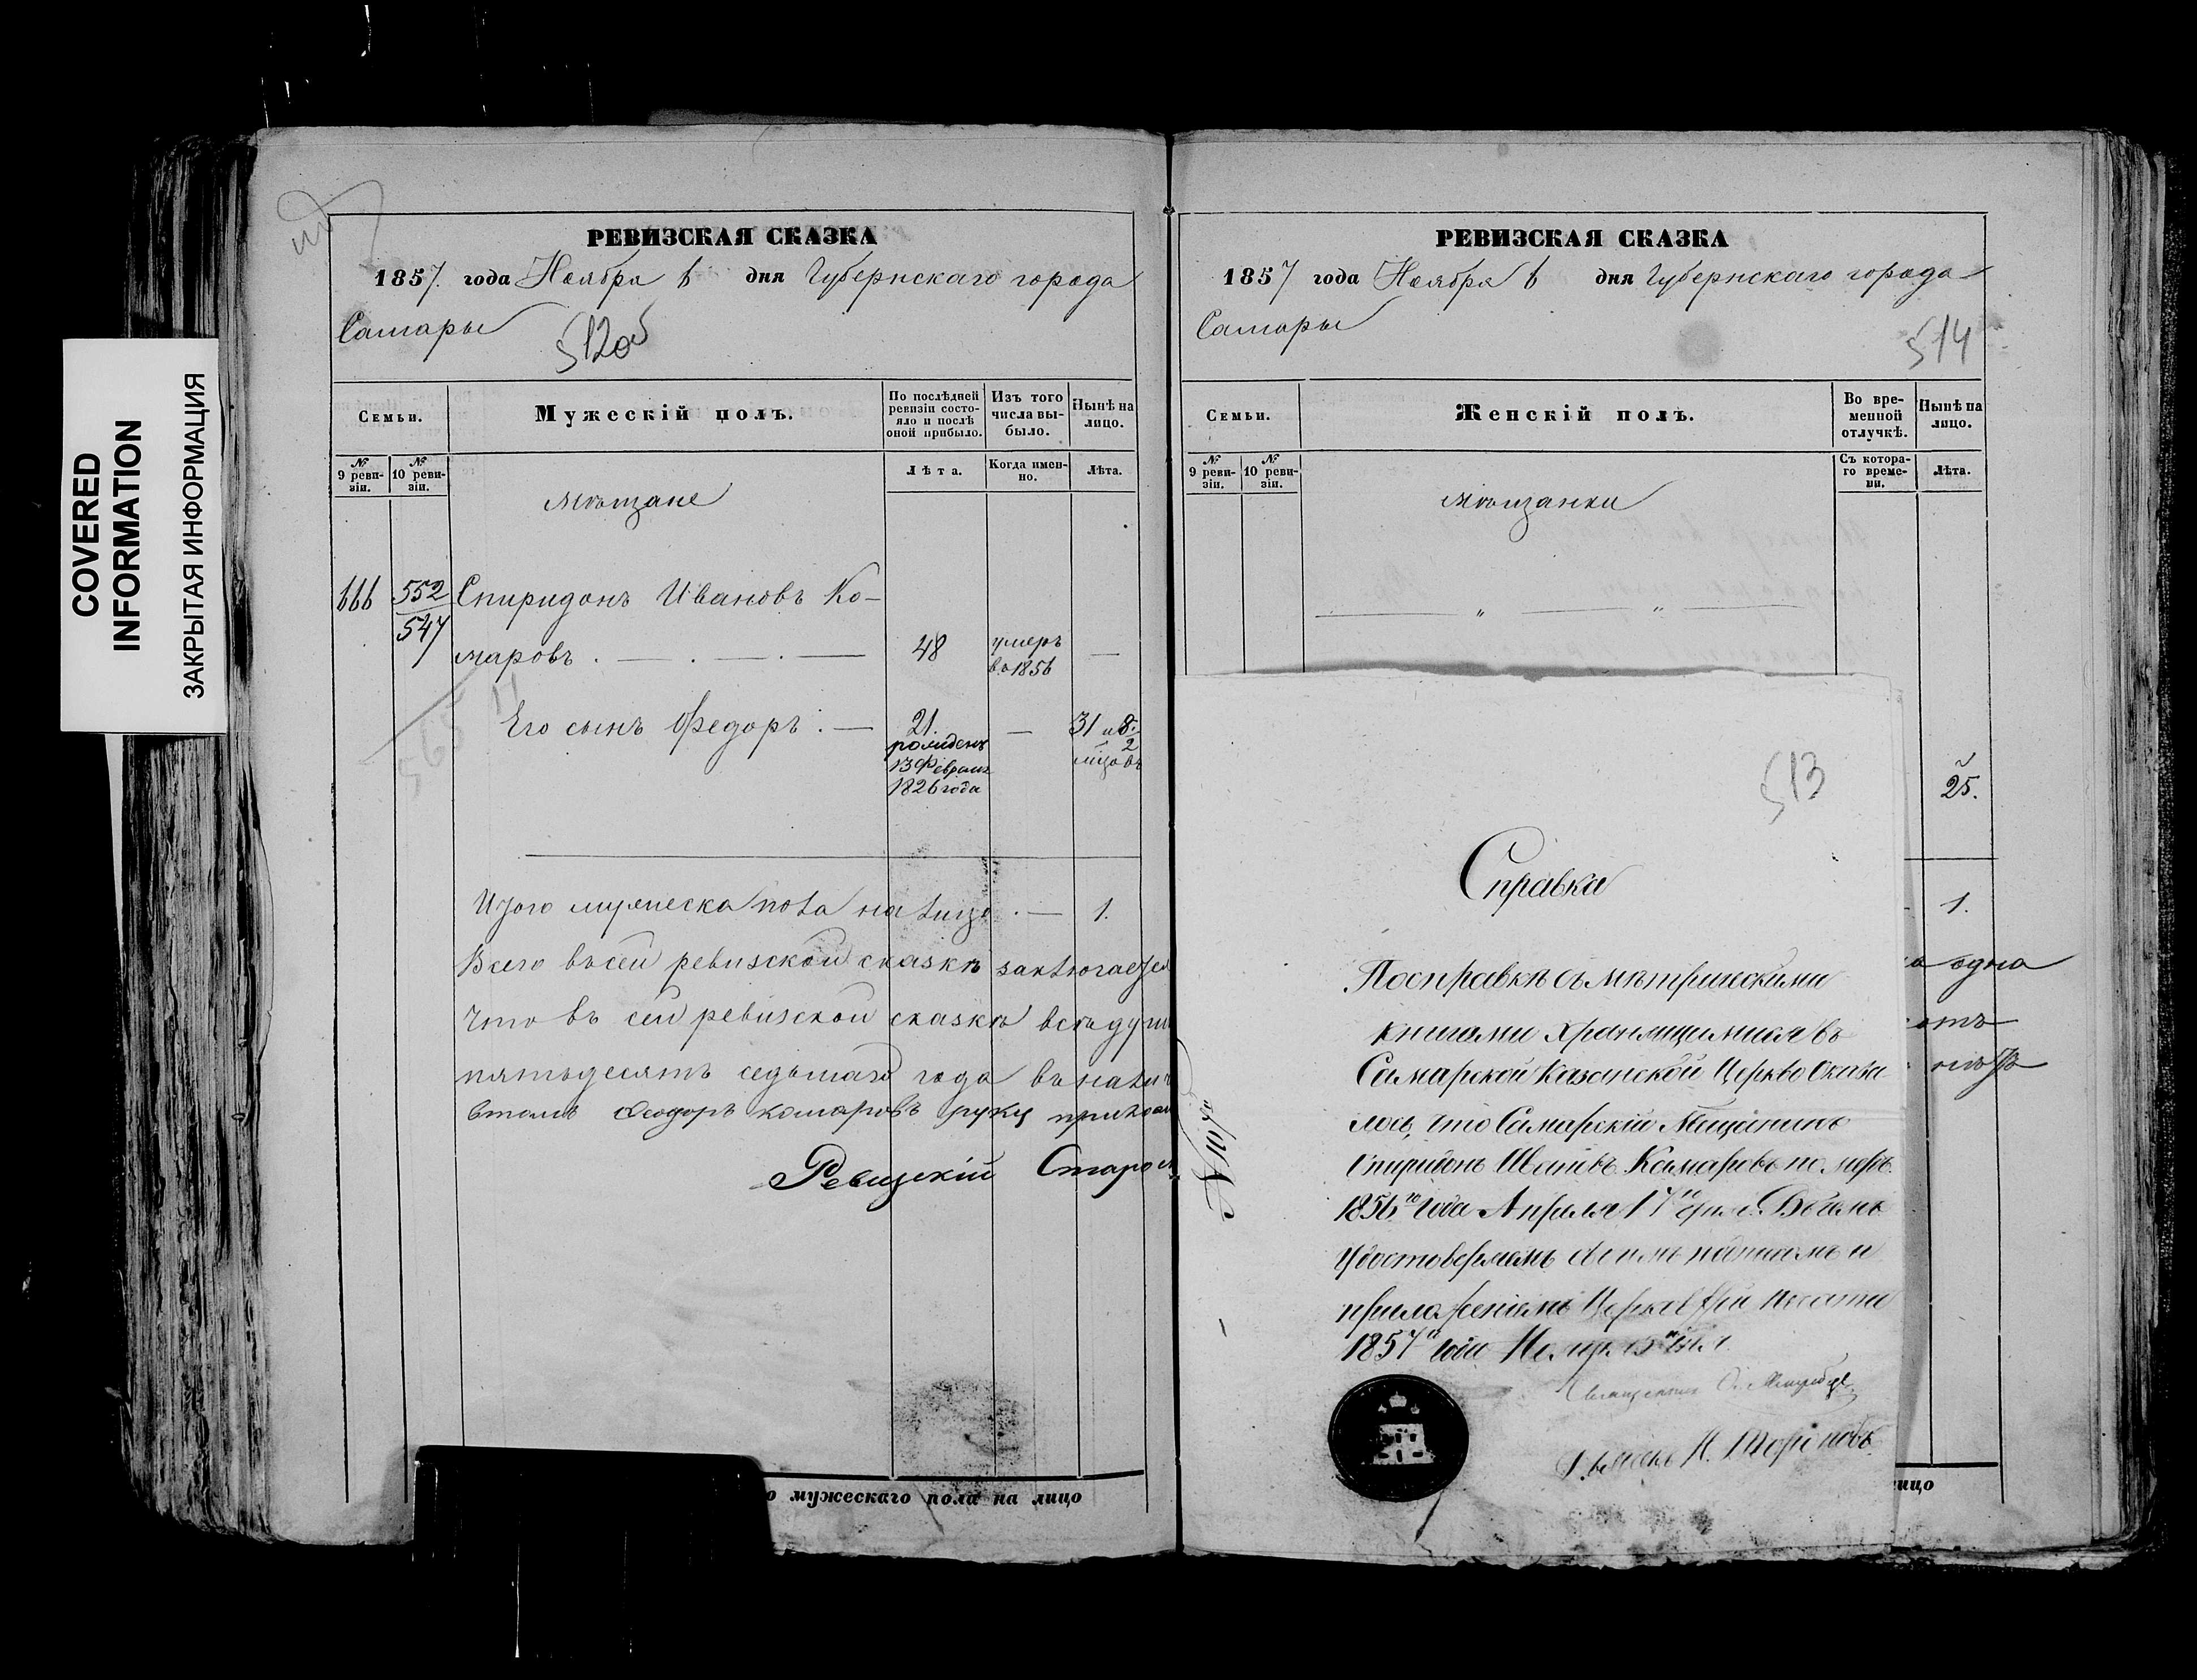 COVERED
INFORMATION
ЗАКРЫТАЯ ИНФОРМАЦИЯ
РЕВИЗСКАЯ СКАЗКА
1857 года Ноября 6 дня Губернскаго города
Самары
512об
Семьи.
Мужескій полъ.
По послѣдней ревизіи состо-
яло и послѣ оной прибыло.
Изъ того числа вы-
было.
Нынѣ на лицо.
№ 9 реви-
зіи.
№ 10 реви-
зіи.
Лѣта.
Когда имен-
но.
Лѣта.
мѣщане
666 552 Спиридонъ Ивановъ Ко-
547
маровъ . — . — . — 48 умеръ въ 1856 —
Его сынъ Федоръ . — 21. — 31 и 8
рожденъ
13 Февраля
1826 года
Итого мужеска пола на лицо . — 1.
Всего въ сей ревизской сказкѣ заключается
Что въ сей ревизской сказкѣ всѣ души
пятьдесятъ седьмаго года въ
въ томъ Федоръ Комаровъ руку прилож
Ревизскій Старо
о мужескаго пола на лицо
РЕВИЗСКАЯ СКАЗКА
1857 года Ноября 6 дня Губернскаго города
Самары
514
Семьи.
Женскій полъ.
Во вре-
менной отлучкѣ.
Нынѣ на лицо.
№ 9 реви-
зіи.
№ 10 реви-
зіи.
Съ котора-
го време-
ни.
Лѣта.
мѣщанки
— " — " —
25.
1.
а одна
лицо
513
Справка
По справкѣ съ мѣтрическими
книгами хранящимися въ
Самарской Казанской Церкво Оказа
лось, что Самарскій Мещанинъ
Спиридонъ Ивановъ Камаровъ померъ
1856го года Апреля 17го дня. Въ чемъ
Удостоверяемъ своимъ подписомъ и
приложеніемъ Церковной печати
1857го года